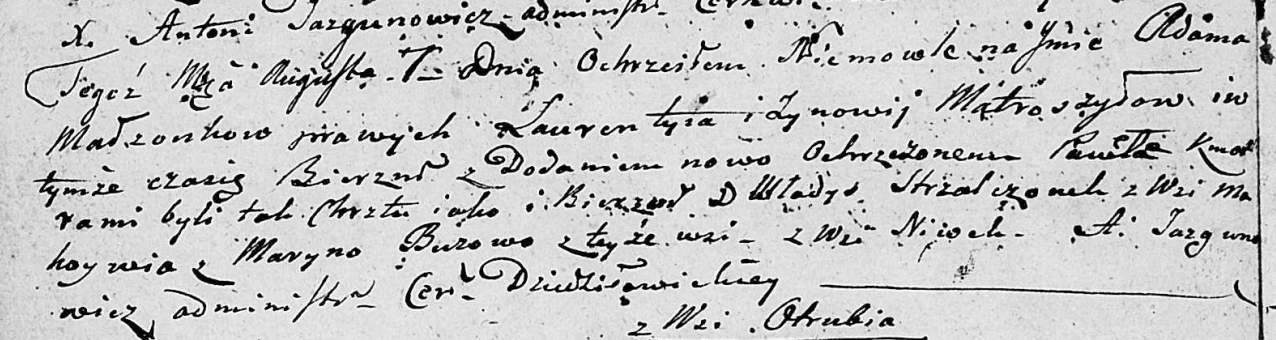 X. Antoni Jazgunowicz administr. Cerkwi
Tegoż Mca Augusta 7 Dnia Ochrzciłem Niemowle na Jmie Adama
Małżonkow prawych Laurentyia i Zynowij Matroszyłow i w
tymże czasie Bierzm z Dodaniem nowo Ochrzczonemu Pawła Kmot
rami byli tak Chrztu iako i Bierzm D Władys Strzałczonek z Wsi Ma
koywia z Maryno Buzowo z teyże wsi z Wsi Niwek A. Jazguno
wicz administr Cer Dziedziłowickiey
z Wsi Otrubia